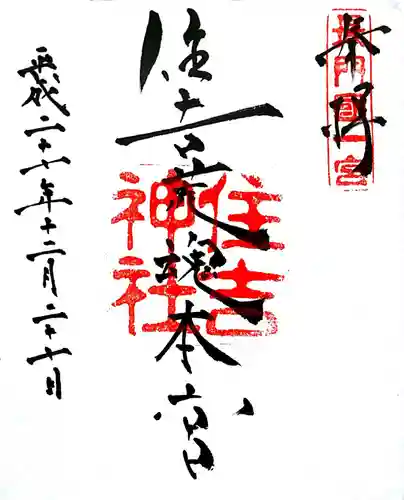 奉拝
長門國一宮
住吉荒魂本宮
住吉神社
平成二十七年十二月二十七日